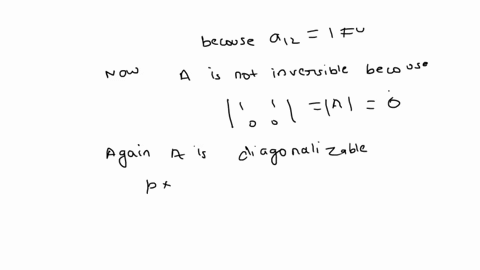 because a12 = 1 ≠ 0
Now A is not inversible because
| 1 1 | = |A| = 0
| 0 0 |
Again A is diagonalizable
px